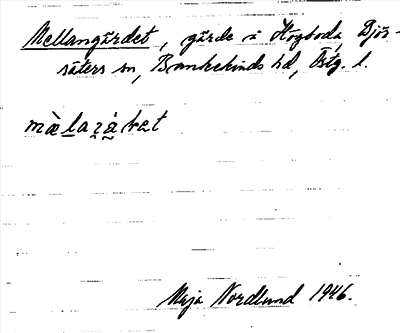 Mellangärdet, gärde i Högboda, Björ-
säters sn, Bankekinds hd, Östg. l.
Maja Nordlund 1946.